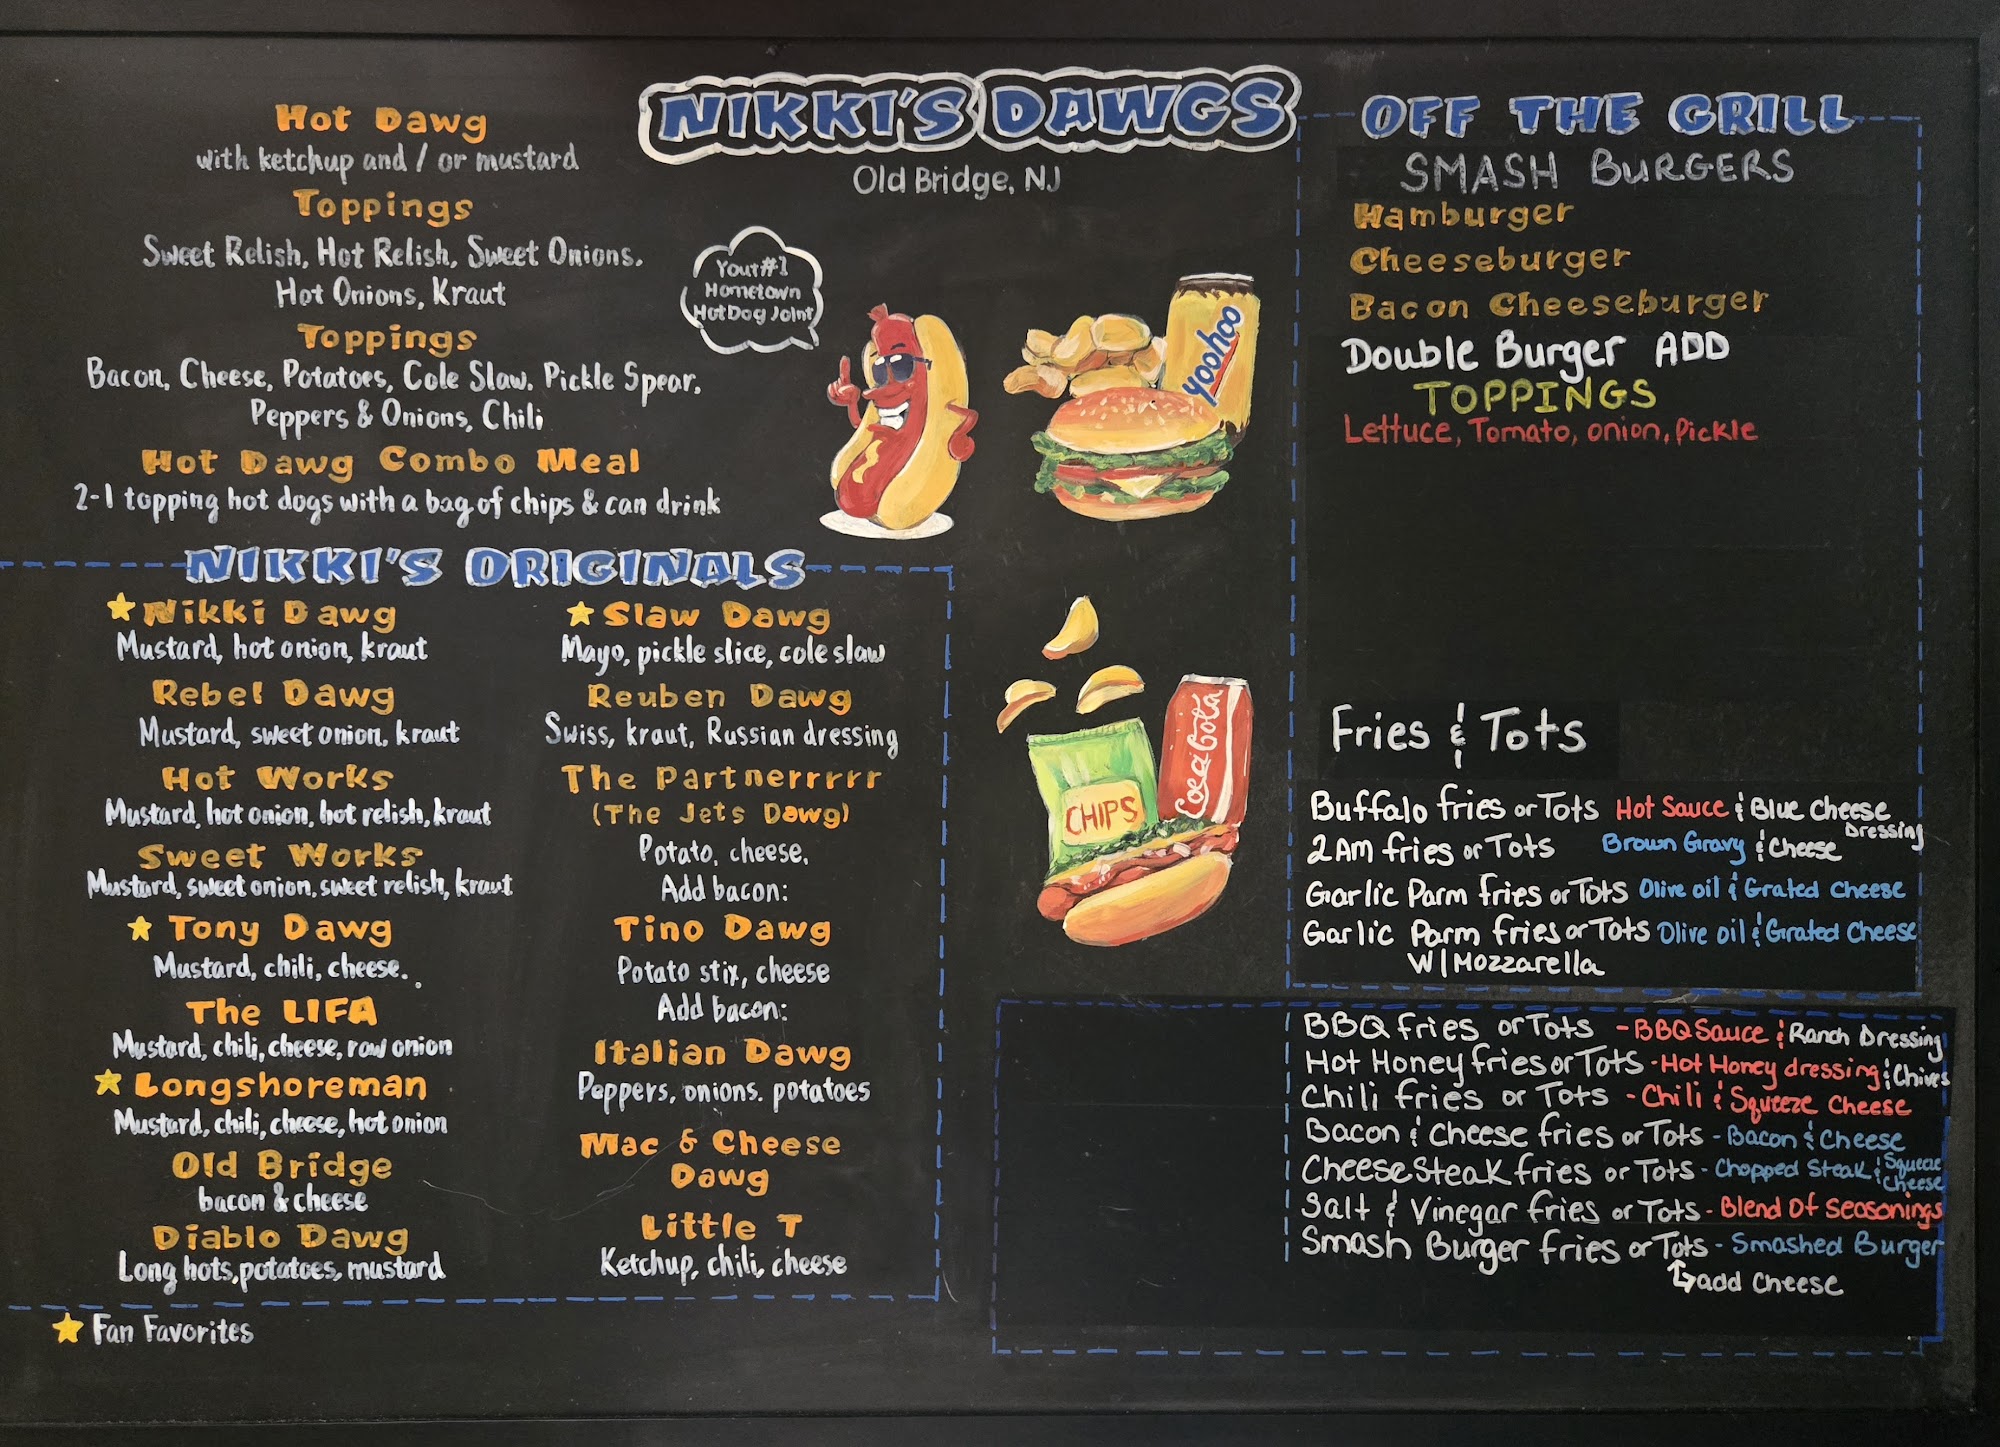 NIKKI'S DAWGS
Old Bridge, NJ
Hot Dawg
with ketchup and / or mustard
Toppings
Sweet Relish, Hot Relish, Sweet Onions.
Hot Onions, Kraut
Toppings
Bacon, Cheese, Potatoes, Cole Slaw, Pickle Spear,
Peppers & Onions, Chili
Hot Dawg Combo Meal
2-1 topping hot dogs with a bag of chips & can drink
Your #1
Hometown
Hot Dog Joint
yoohoo
CHIPS
Coca Cola
NIKKI'S ORIGINALS
Nikki Dawg
Mustard, hot onion, kraut
Rebel Dawg
Mustard, sweet onion, kraut
Hot Works
Mustard, hot onion, hot relish, kraut
Sweet Works
Mustard, sweet onion, sweet relish, kraut
Tony Dawg
Mustard, chili, cheese.
The LIFA
Mustard, chili, cheese, raw onion
Longshoreman
Mustard, chili, cheese, hot onion
Old Bridge
bacon & cheese
Diablo Dawg
Long hots, potatoes, mustard
Slaw Dawg
Mayo, pickle slice, cole slaw
Reuben Dawg
Swiss, kraut, Russian dressing
The Partnerrrrr
(The Jets Dawg)
Potato, cheese,
Add bacon:
Tino Dawg
Potato stix, cheese
Add bacon:
Italian Dawg
Peppers, onions. potatoes
Mac & Cheese
Dawg
Little T
Ketchup, chili, cheese
Fan Favorites
OFF THE GRILL
SMASH BURGERS
Hamburger
Cheeseburger
Bacon Cheeseburger
Double Burger ADD
TOPPINGS
Lettuce, Tomato, onion, Pickle
Fries & Tots
Buffalo fries or Tots Hot Sauce & Blue Cheese
Dressing
2AM fries or Tots Brown Gravy & Cheese
Garlic Parm fries or Tots Olive oil & Grated Cheese
Garlic Parm fries or Tots Olive oil & Grated Cheese
W/Mozzarella
BBQ fries or Tots - BBQ Sauce & Ranch Dressing
Hot Honey fries or Tots - Hot Honey dressing & Chives
Chili fries or Tots - Chili & Squeeze Cheese
Bacon & Cheese fries or Tots - Bacon & Cheese
CheeseSteak fries or Tots - Chopped Steak & Squeeze
Cheese
Salt & Vinegar fries or Tots - Blend Of Seasonings
Smash Burger fries or Tots - Smashed Burger
add Cheese